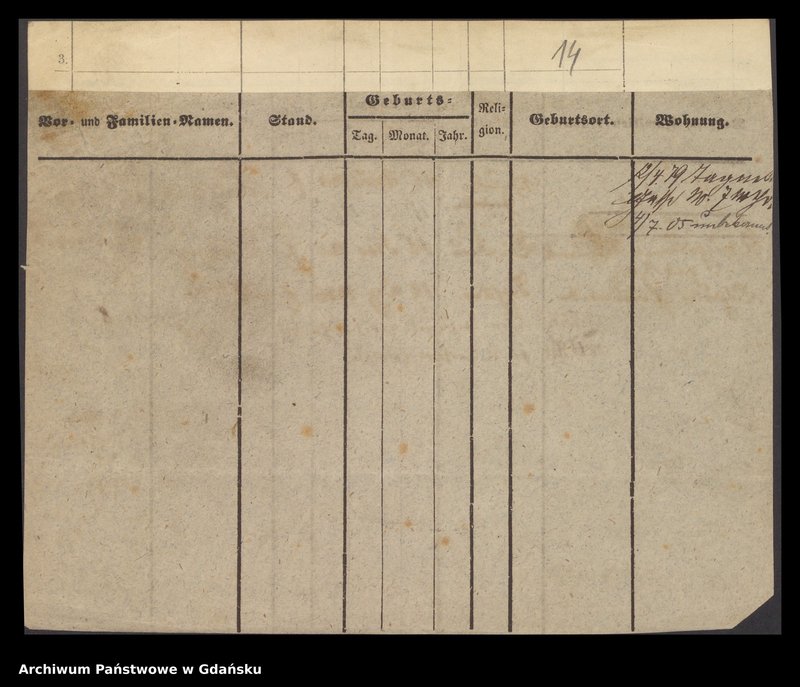 3.
14
Vor- und Familien-Namen.
Stand.
Geburts-
Tag.
Monat.
Jahr.
Reli-
gion.
Geburtsort.
Wohnung.
2/4. 79
No. 7
4/7. 05 unbekannt.
Archiwum Państwowe w Gdańsku